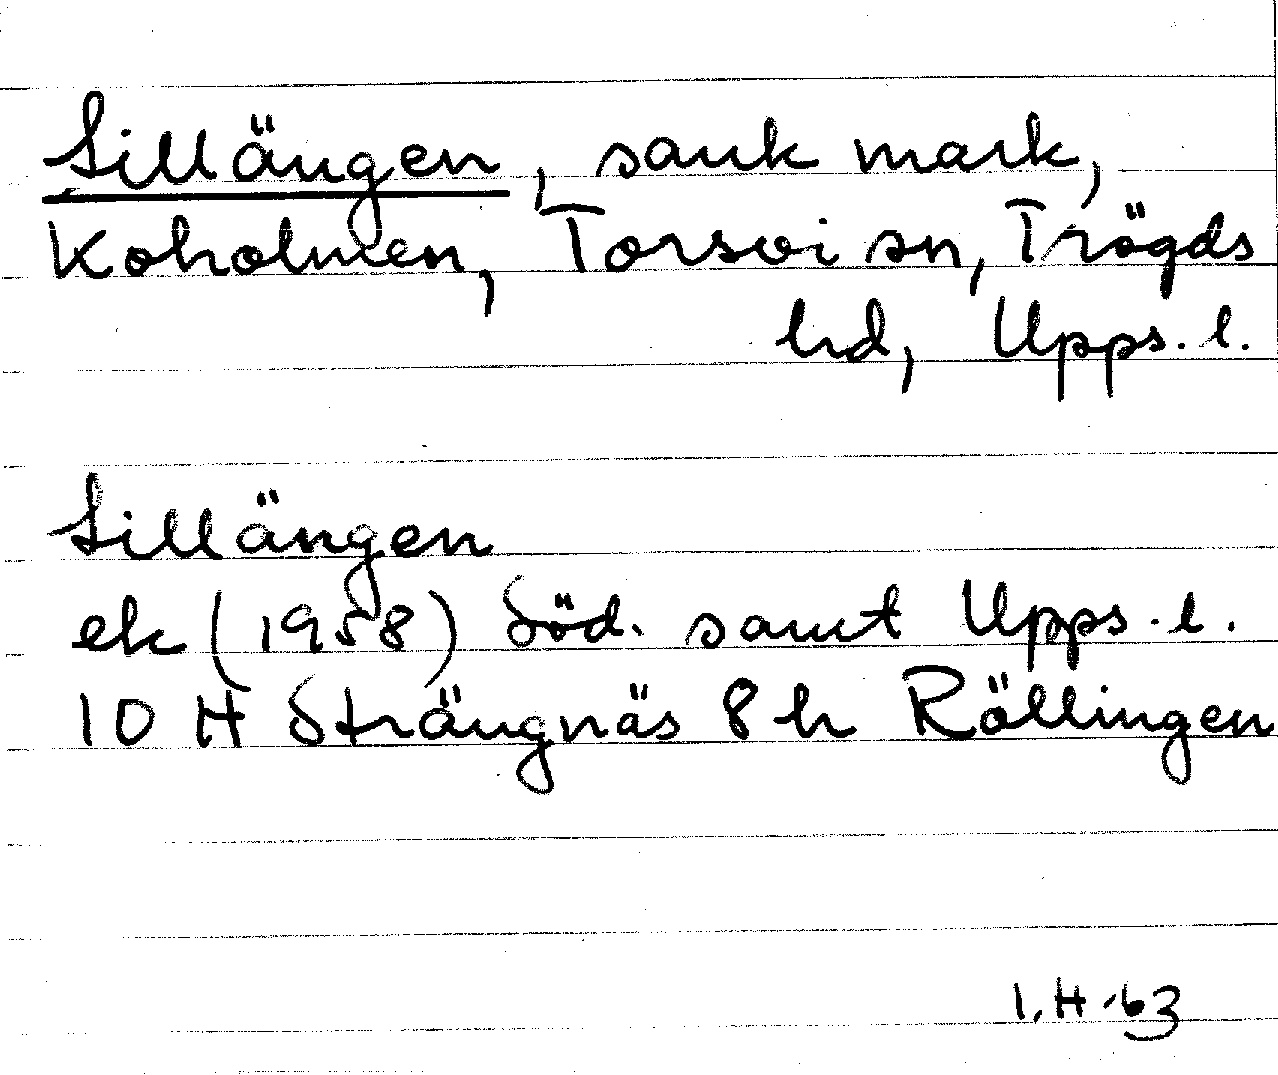 Sillängen, sank mark,
Koholmen, Torsvi sn, Trögds
hd, Upps. l.
Sillängen
ek (1958) Söd. samt Upps. l.
10 H Strängnäs 8 h Röllingen
I. H -63